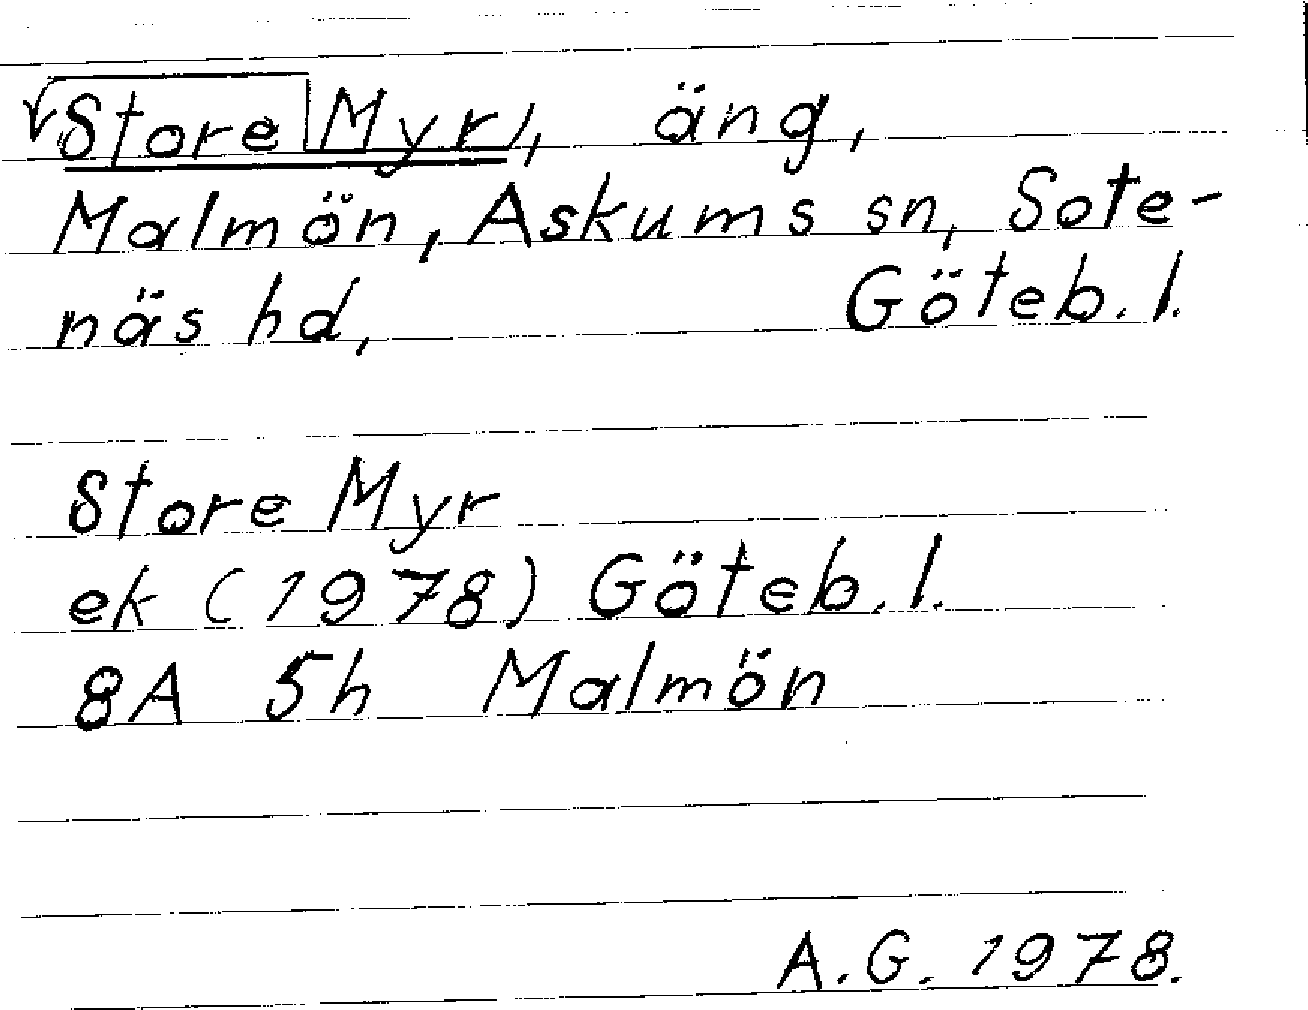 Store Myr, äng,
Malmön, Askums sn, Sote-
näs hd, Göteb. l.
Store Myr
ek (1978) Göteb. l.
8A 5h Malmön
A.G. 1978.